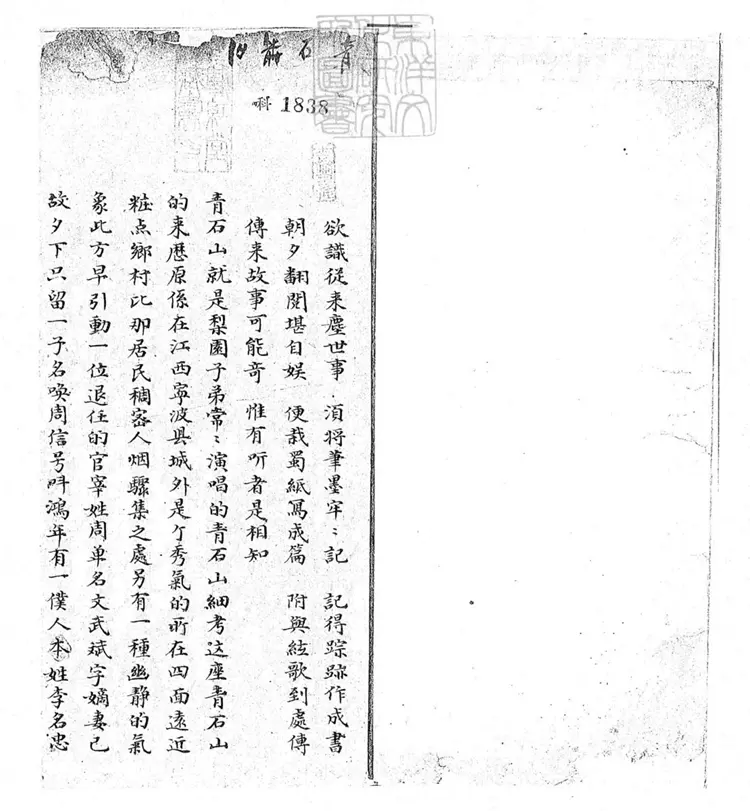 青石
1838
東洋文化研究所圖書
欲識從来塵世事 須将筆墨牢〻記 記得踪跡作成書
朝夕翻閱堪自娯 便裁蜀紙寫成篇 附與絃歌到處傳
傳来故事可能奇 惟有听者是相知
青石山就是梨園子弟常〻演唱的青石山細考这座青石山
的来歷原係在江西寧波县城外是个秀氣的所在四面遠近
粧点鄉村比那居民稠密人烟驟集之處另有一種幽静的氣
象此方早引動一位退任的官宰姓周单名文武斌字嫡妻已
故夕下只留一子名喚周信号叫鴻年有一僕人本姓李名忠